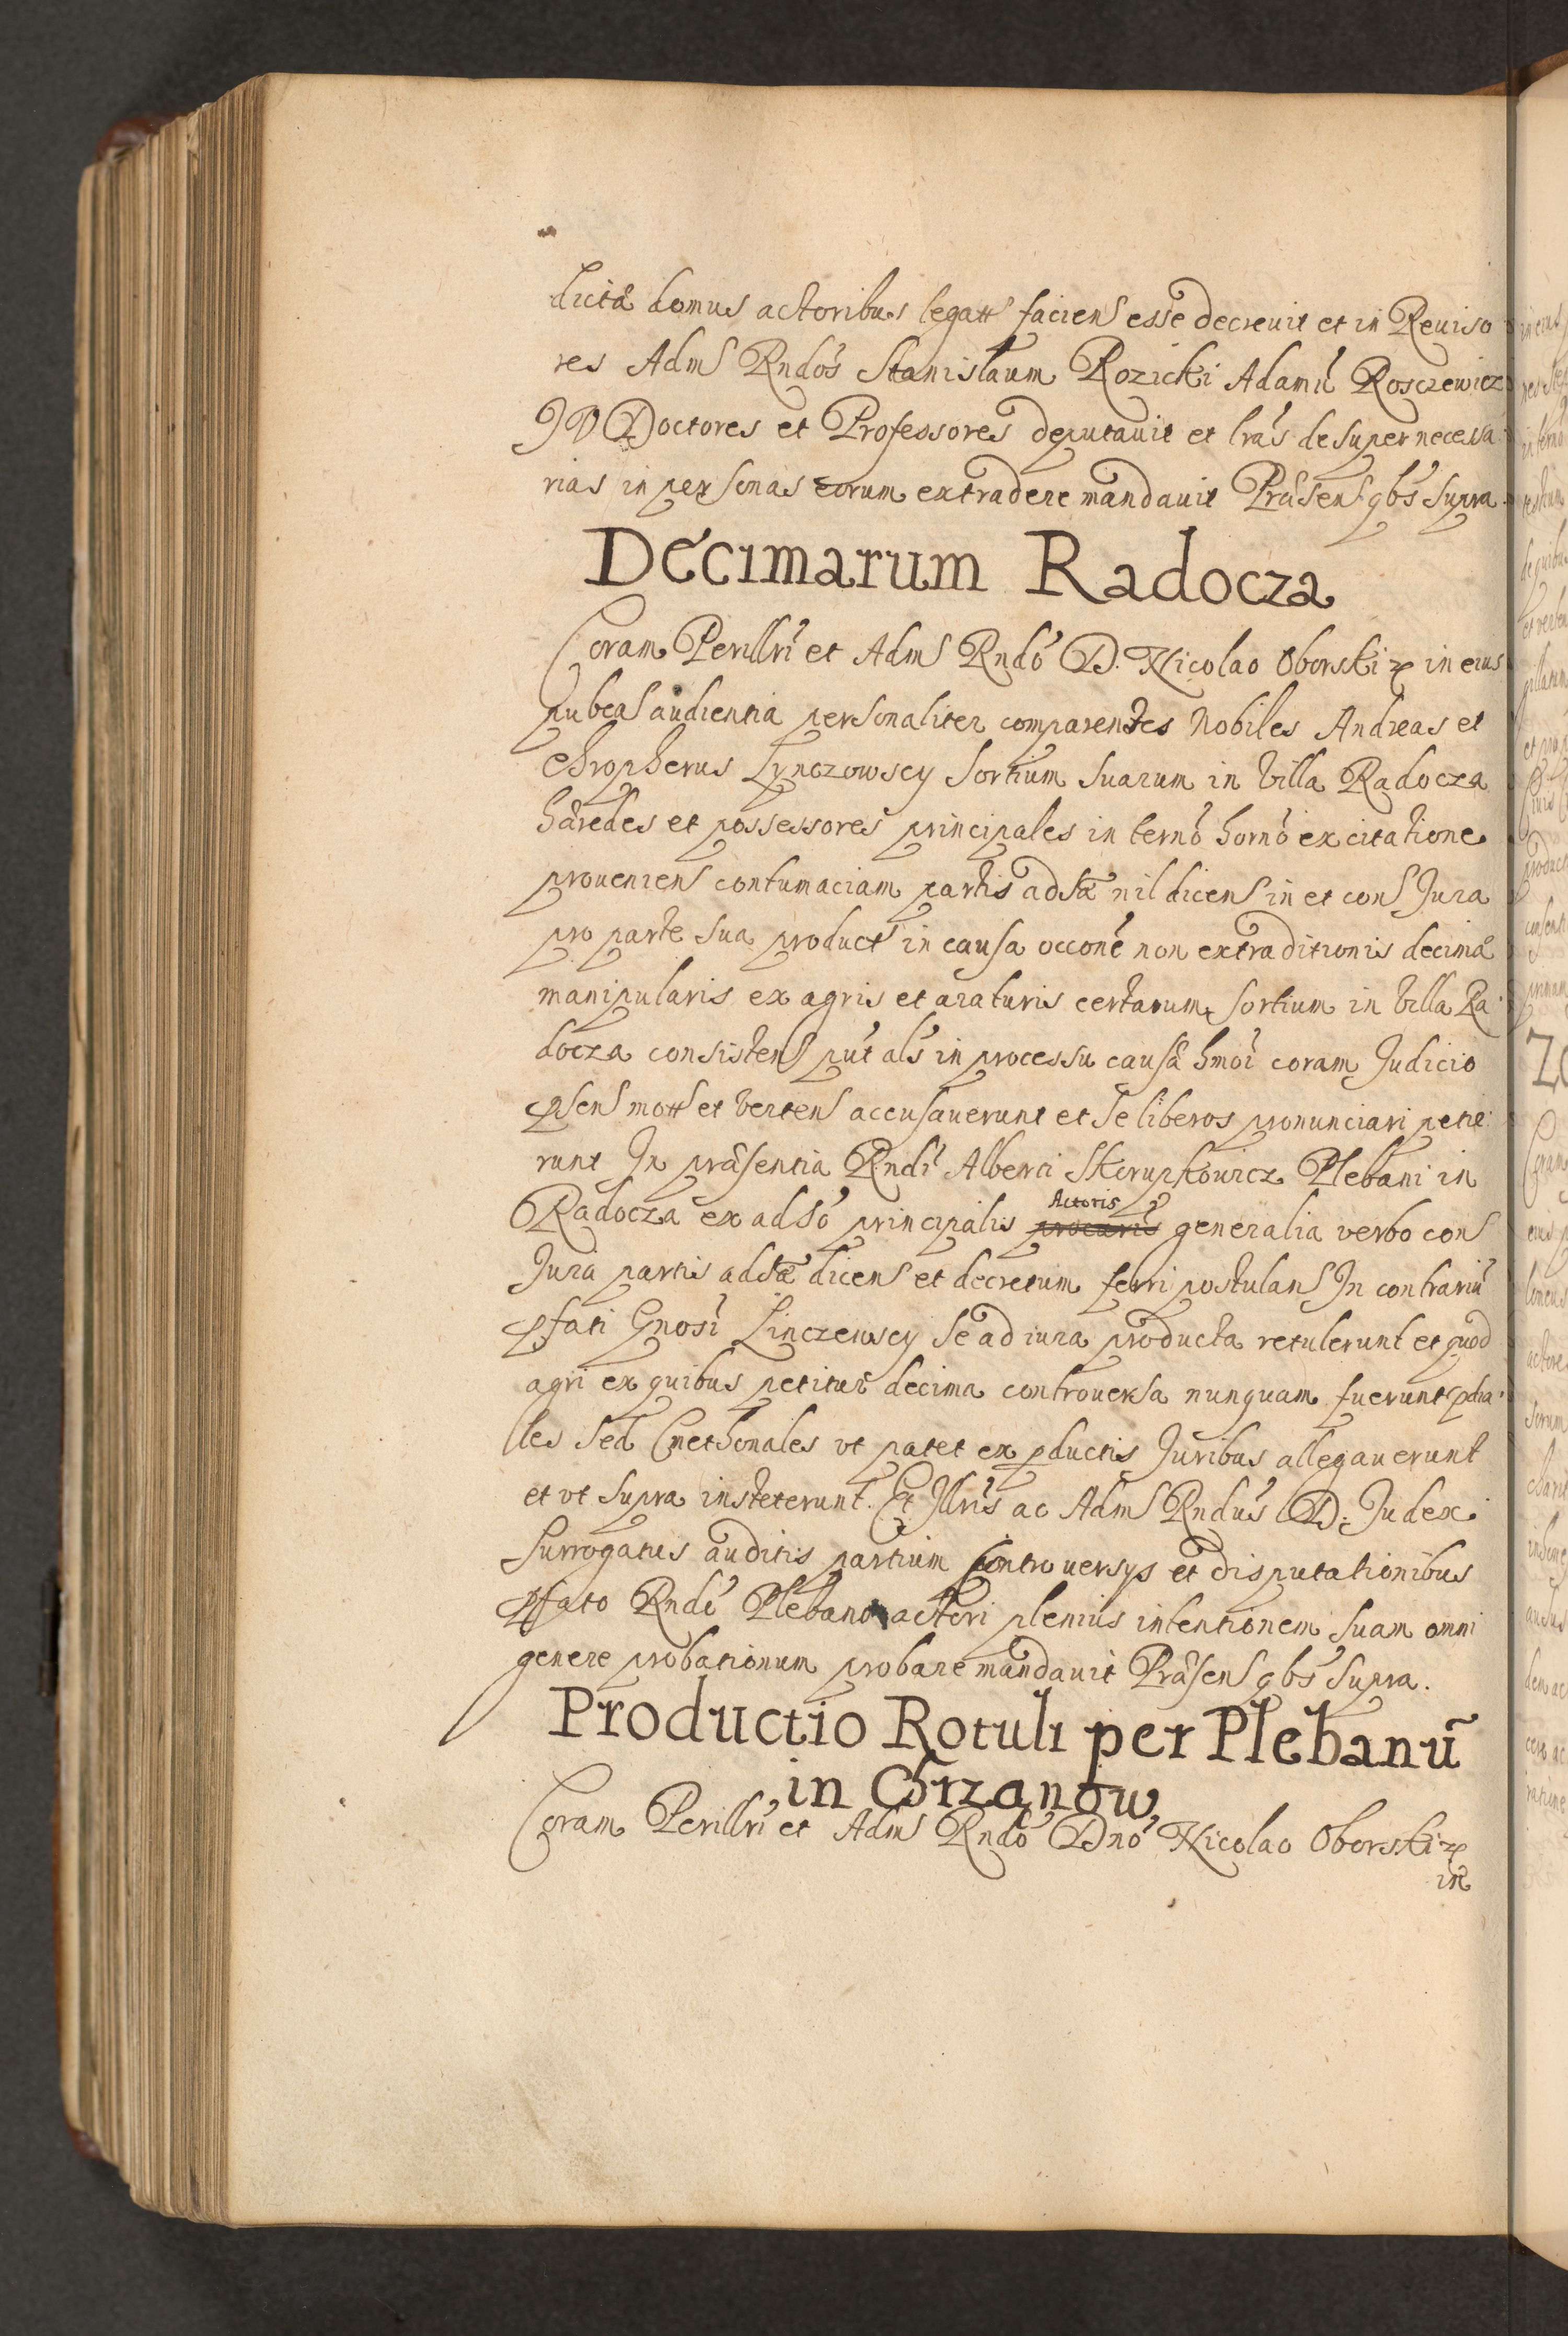 dictæ domus actoribus legatt faciens esse decrevit et in Reviso
res Adms Rndos Stanislaum Rozicki Adamū Rosczewicz
JV Doctores et Professores deputavit et lras desuper necessa
rias in personas eorum extradere mandavit Præsens qbs supra.
Decimarum Radocza
Coram Perillri et Adms Rndo D. Nicolao Oborski in eius
pubca audientia personaliter comparentes Nobiles Andreas et
Chropherus Lynczowscy sortium suarum in villa Radocza
hæredes et possessores principales in termō horno ex citatione
proveniens contumaciam partis adsæ nil dicens in et cons Jura
pro parte sua product in causa occone non extraditionis decimæ
manipularis ex agris et araturis certarum sortium in villa Ra
docza consistens put als in processu causæ hmoi coram Judicio
psens mott et vertens accusaverunt et se liberos pronunciari petie
runt In præsentia Rndi Alberti Skorupkowicz Plebani in
Radocza ex adso principalis procuris Actoris generalia verbo cons
Jura partis adsæ dicens et decretum ferri postulans In contrariū
pfati Gnosi Linczewscy se ad iura producta retulerunt et quod
agri ex quibus petitur decima controversa nunquam fuerunt pdia
les sed Cmethonales vt patet ex pductis Juribus allegaverunt
et vt supra insteterunt. Et Jllris ac Adms Rndus D. Judex
Surrogatus auditis partium controversys et disputationibus
pfato Rndo Plebano actori plenius intentionem suam omni
genere probationum probare mandavit Præsens qbs supra.
Productio Rotuli per Plebanū
in Chrzanow
Coram Perillri et Adms Rndo Dno Nicolao Oborski
in